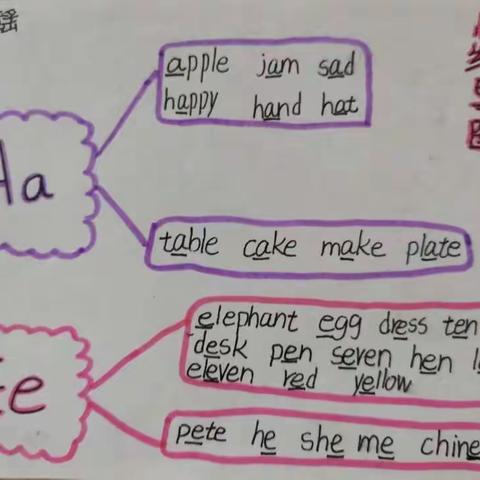 谣
apple jam sad
happy hand hat
Aa
table cake make plate
elephant egg dress ten
desk pen seven hen
eleven red yellow
Ee
pete he she me chine